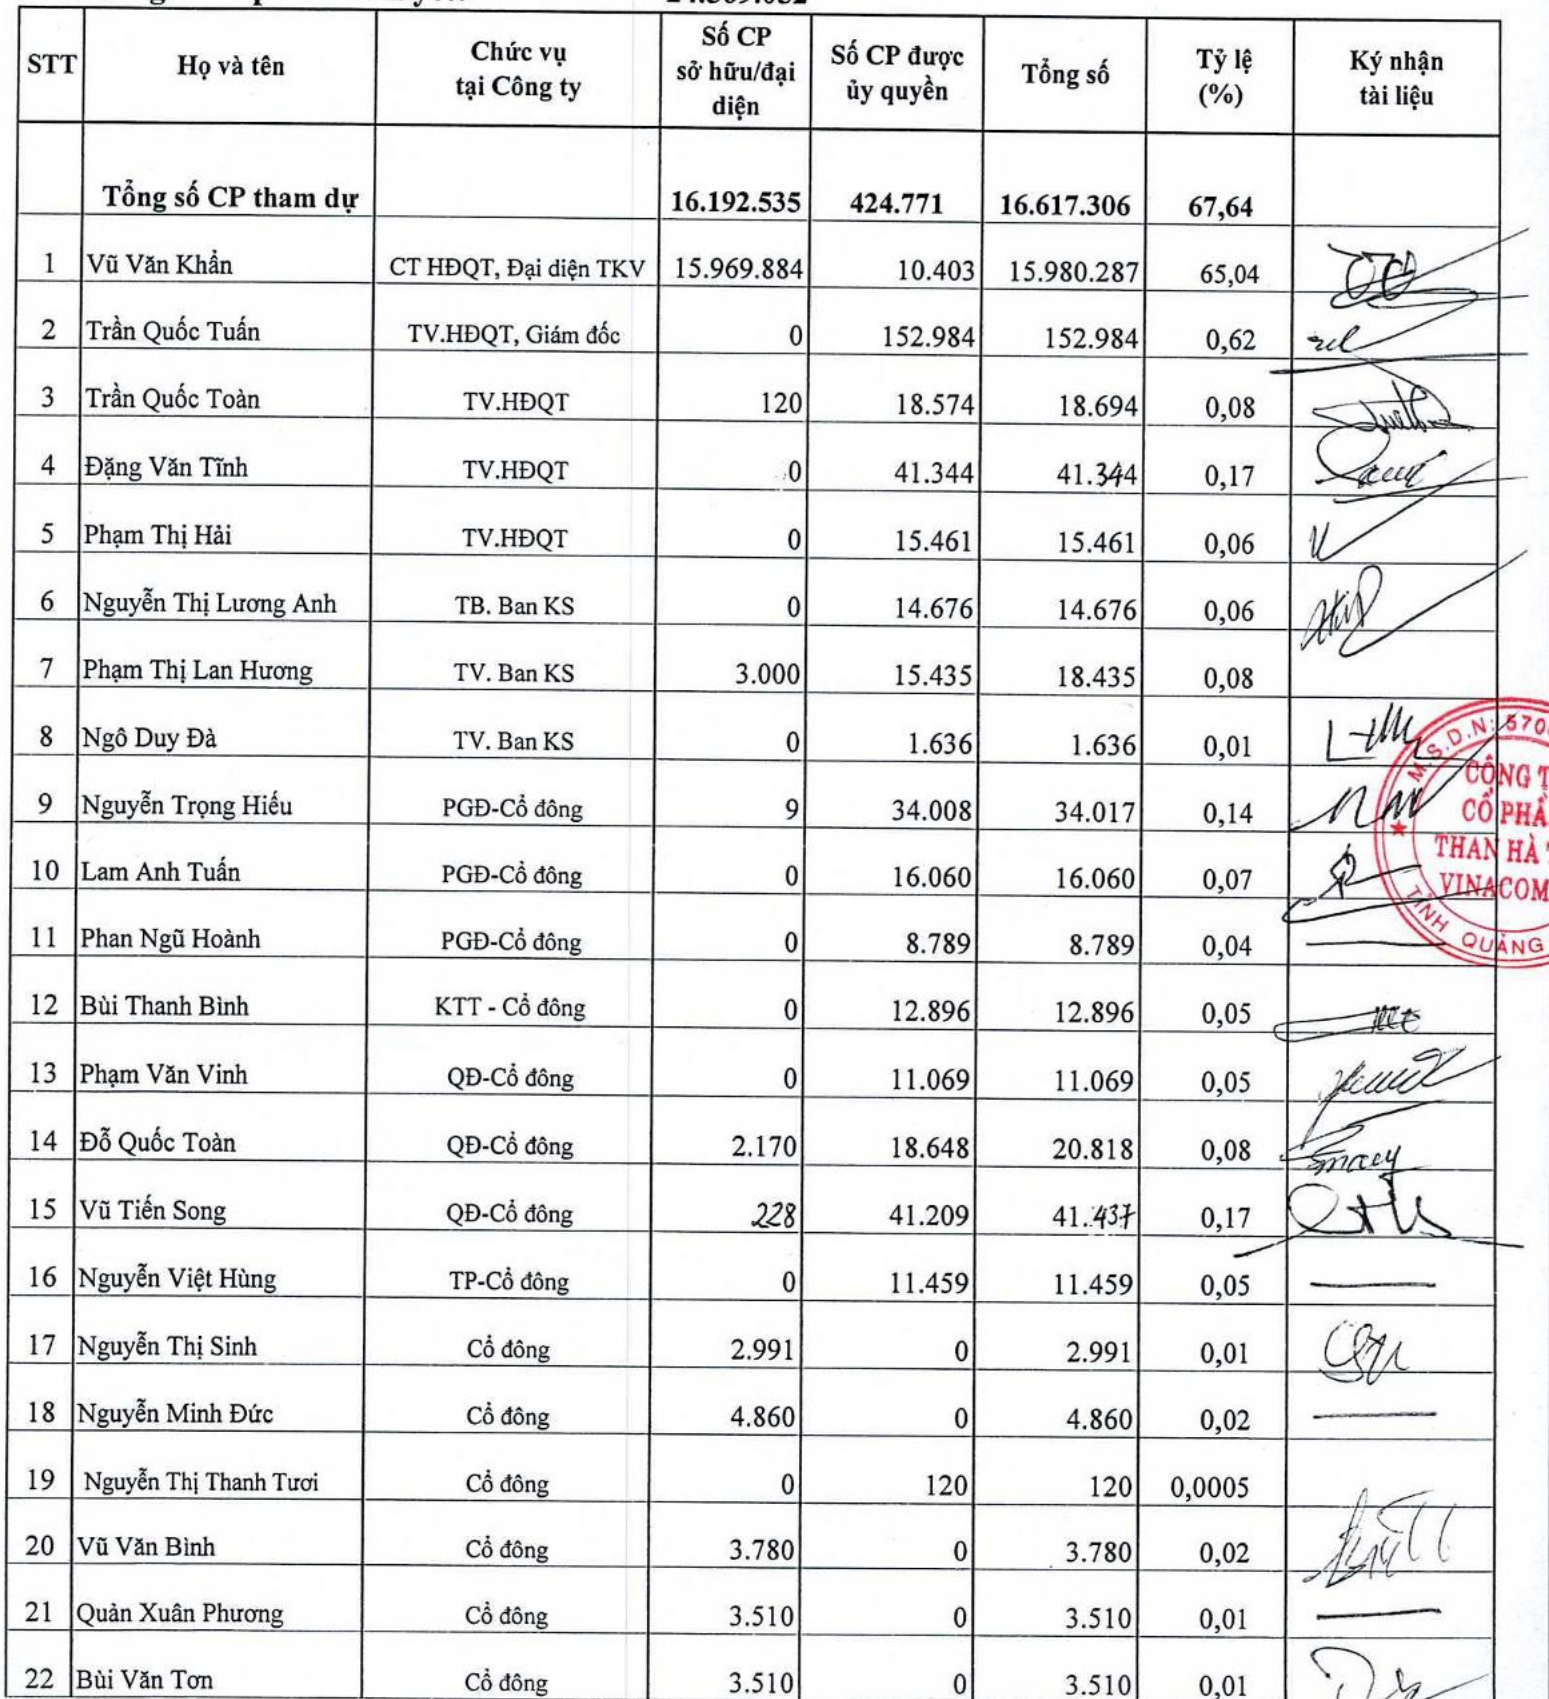 24.569.052
STT Họ và tên Chức vụ tại Công ty Số CP sở hữu/đại diện Số CP được ủy quyền Tổng số Tỷ lệ (%) Ký nhận tài liệu
Tổng số CP tham dự 16.192.535 424.771 16.617.306 67,64
1 Vũ Văn Khẩn CT HĐQT, Đại diện TKV 15.969.884 10.403 15.980.287 65,04
2 Trần Quốc Tuấn TV.HĐQT, Giám đốc 0 152.984 152.984 0,62
3 Trần Quốc Toàn TV.HĐQT 120 18.574 18.694 0,08
4 Đặng Văn Tĩnh TV.HĐQT 0 41.344 41.344 0,17
5 Phạm Thị Hải TV.HĐQT 0 15.461 15.461 0,06
6 Nguyễn Thị Lương Anh TB. Ban KS 0 14.676 14.676 0,06
7 Phạm Thị Lan Hương TV. Ban KS 3.000 15.435 18.435 0,08
8 Ngô Duy Đà TV. Ban KS 0 1.636 1.636 0,01
9 Nguyễn Trọng Hiếu PGĐ-Cổ đông 9 34.008 34.017 0,14
10 Lam Anh Tuấn PGĐ-Cổ đông 0 16.060 16.060 0,07
11 Phan Ngũ Hoành PGĐ-Cổ đông 0 8.789 8.789 0,04
12 Bùi Thanh Bình KTT - Cổ đông 0 12.896 12.896 0,05
13 Phạm Văn Vinh QĐ-Cổ đông 0 11.069 11.069 0,05
14 Đỗ Quốc Toàn QĐ-Cổ đông 2.170 18.648 20.818 0,08
15 Vũ Tiến Song QĐ-Cổ đông 228 41.209 41.437 0,17
16 Nguyễn Việt Hùng TP-Cổ đông 0 11.459 11.459 0,05
17 Nguyễn Thị Sinh Cổ đông 2.991 0 2.991 0,01
18 Nguyễn Minh Đức Cổ đông 4.860 0 4.860 0,02
19 Nguyễn Thị Thanh Tươi Cổ đông 0 120 120 0,0005
20 Vũ Văn Bình Cổ đông 3.780 0 3.780 0,02
21 Quản Xuân Phương Cổ đông 3.510 0 3.510 0,01
22 Bùi Văn Tơn Cổ đông 3.510 0 3.510 0,01
M.S.D.N: 570
CÔNG T
CỔ PHẦ
THAN HÀ T
VINACOM
TỈNH QUẢNG